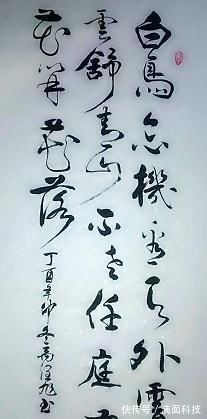 白鳥忘機看天外雲
雲舒青山不老任庭
花開花落
丁酉年仲冬
快传号/满面科技